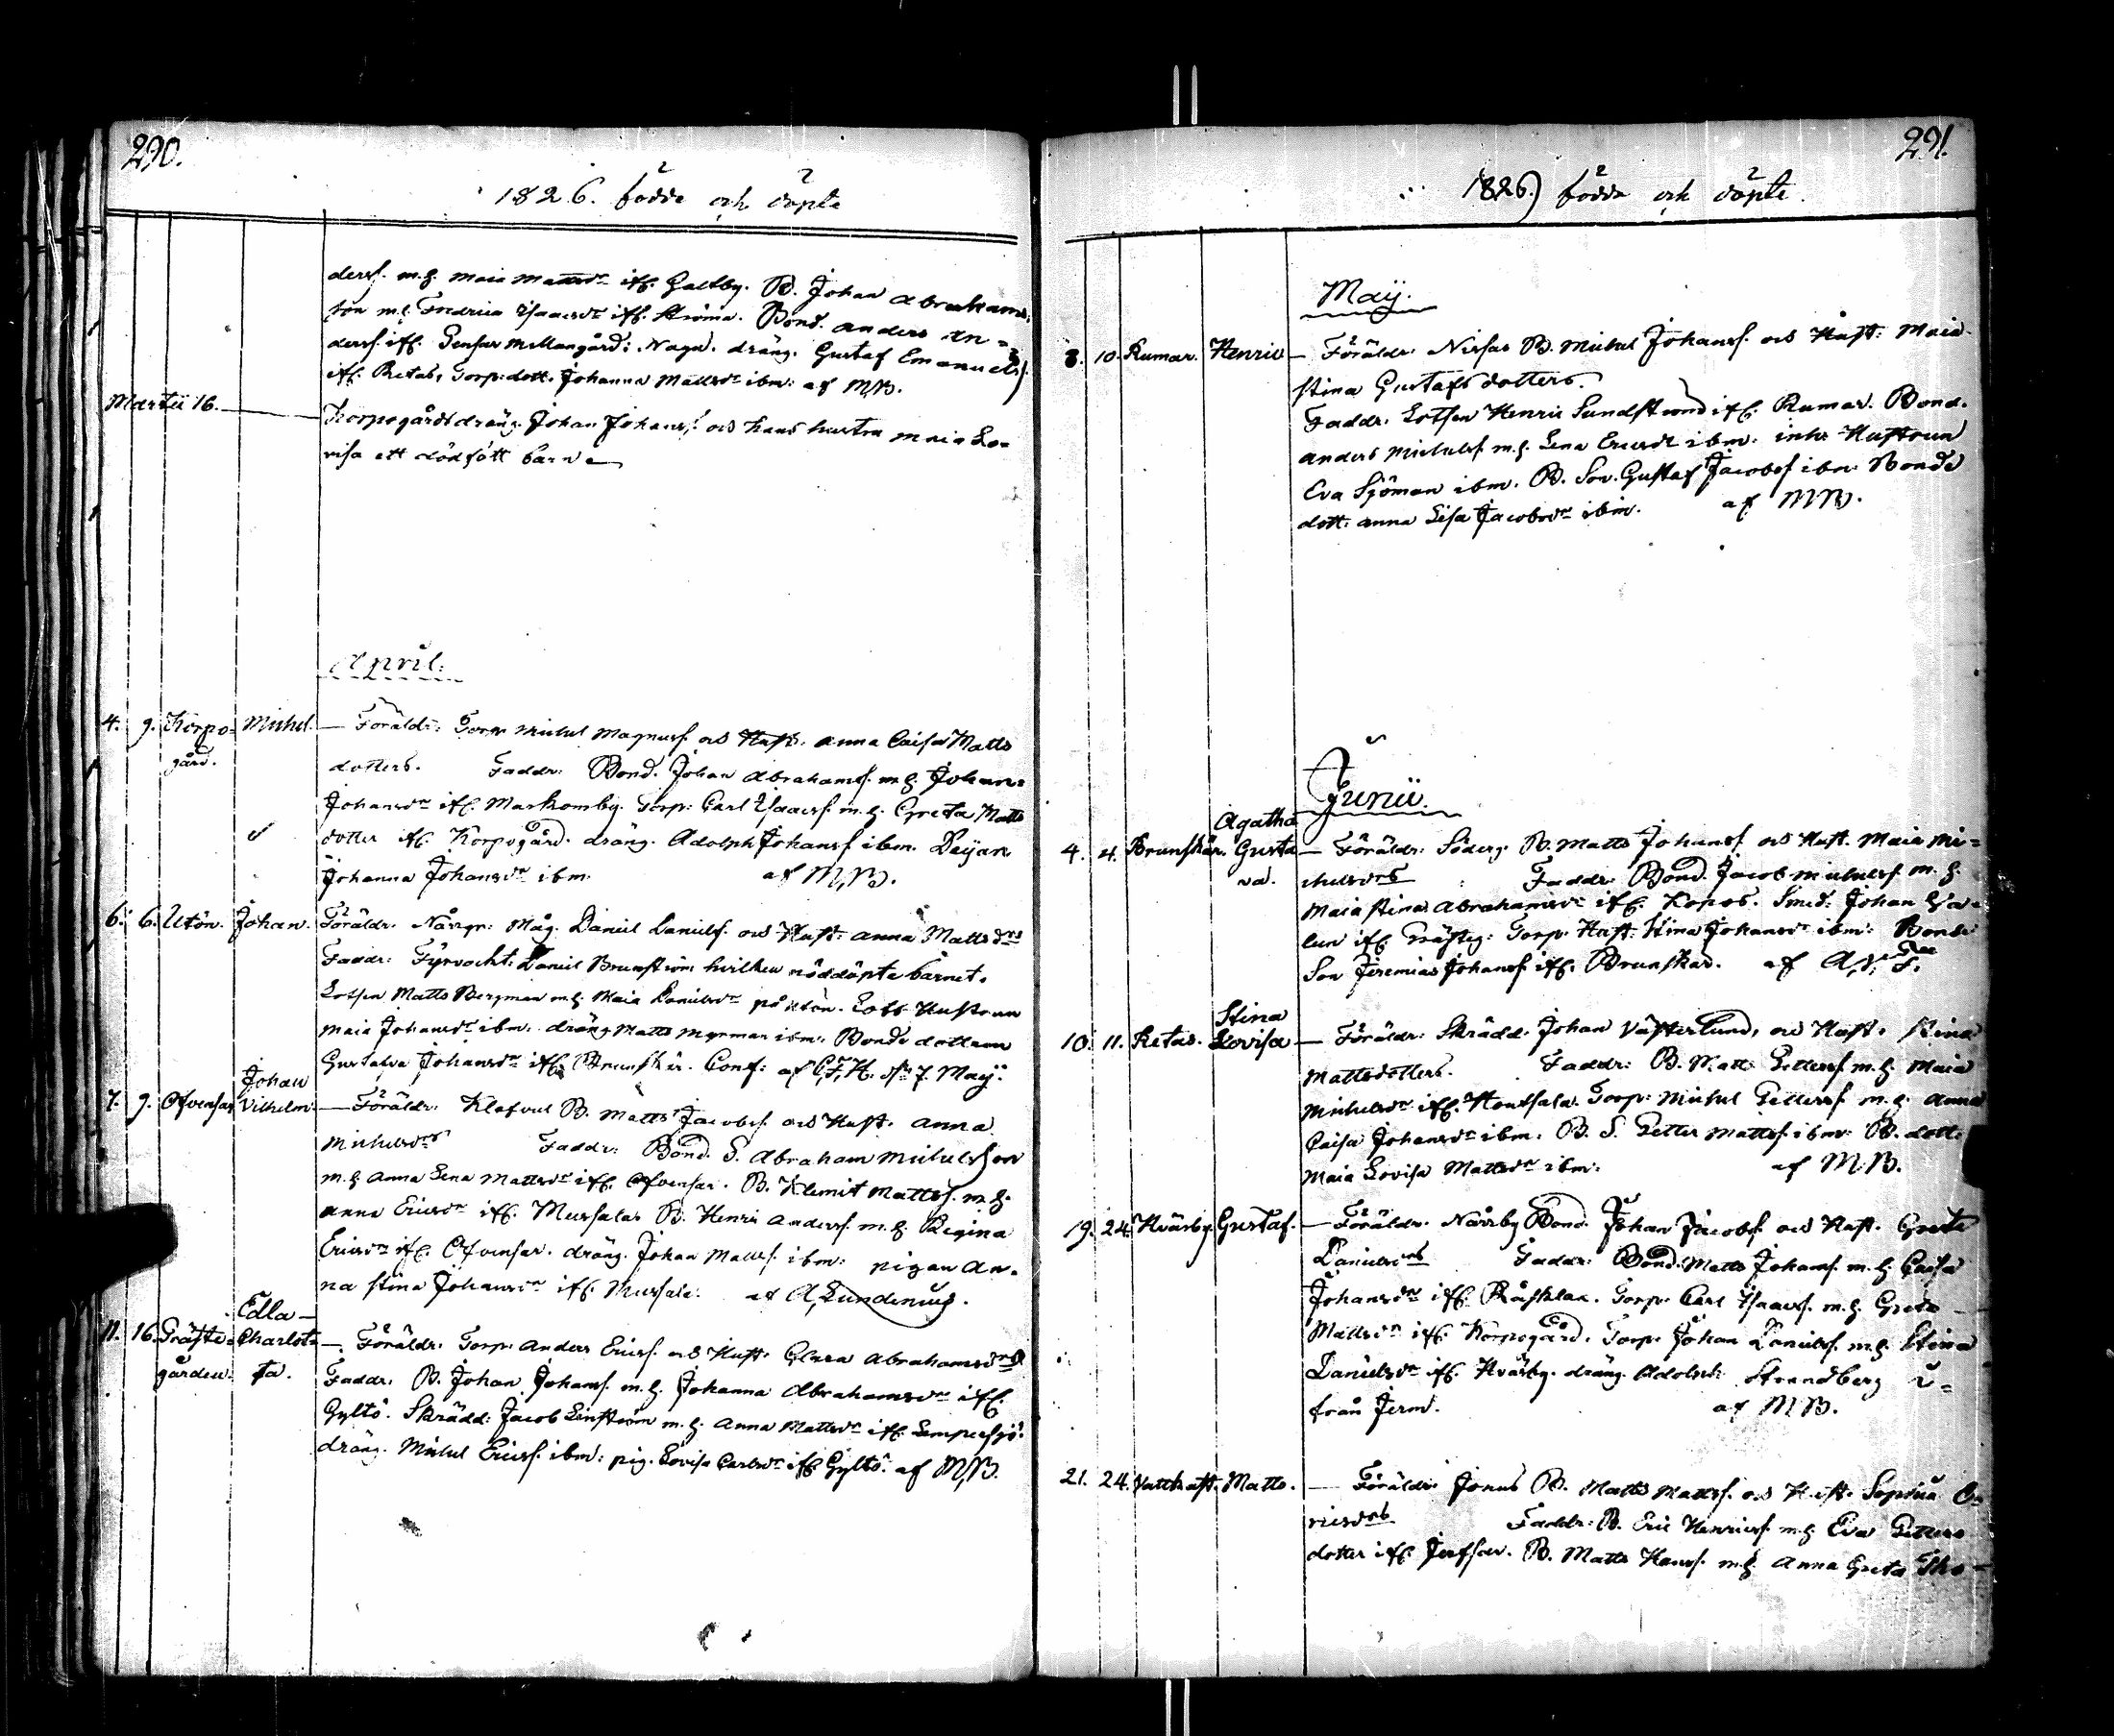 290.
1826. födde och döpte
derss. m.h. Maia Mattsdr ifr. Galtby. B. Johan Abrahams-
son m.h. Fredrica Isaacsdr ifr. Ströma. Bond. Anders An-
derss. ifr. Gensar Mellangård: Nagu. dräng. Gustaf Emanuels.
ifr. Retais, Torp: dott. Johanna Mattsdr ibm: af MB.
Martii 16.
Korpogårds dräng. Johan Johanss. och hans hustru Maia Lo-
visa ett dödfött barn
April:
4. 9. Korpo- Michel. — Föräldr: Torp. Michel Magnuss. och Hust. Anna Caisa Matts
gård. dotters. Faddr: Bond. Johan Abrahamss. m.h. Johan-
Johansdr ifr. Markomby. Torp: Carl Isaacss. m.h. Greta Matts
dotter ifr. Korpogård. dräng. Adolph Johanss. ibm. Deijan
Johanna Johansdr ibm. af M.B.
6. 6. Utön. Johan. Föräldr. Måg. Daniel Daniels. och Hust. Anna Mattsdrs
Faddr: Fyrvacht: Daniel Brunström hvilken nöddöpte barnet.
Lotsen Matts Bergman m.h. Maia Danielsdr på Utön. Lots Hustrun
Maia Johansdr ibm: dräng Matts Myrman ibm: Bonde dottern
Gustafva Johansdr ifr. Brunskär. Conf: af C.F.H. d. 7. Maij.
Johan
7. 9. Ofvensar Vilhelm. — Föräldr: B. Matts Jacobss. och Hust. Anna
Michelsdrs Faddr: Bond. S. Abraham Michelsson
m.h. Anna Lena Mattsdr ifr. Ofvensar. B. Klemit Mattss. m.h.
Anna Ericsdr ifr. Mussala. B. Henric Anderss. m.h. Regina
Ericsdr ifr. Ofvensar. dräng. Johan Matss. ibm: pigan An-
na Stina Johansdr ifr. Mussala. af A, Lundenius.
Edla —
11. 16. Präste- Charlot- — Föräldr: Torp. Anders Ericss. och Hust. Clara Abrahamsdrs
gården. ta. Faddr. B. Johan Johanss. m.h. Johanna Abrahamsdr ifr.
Gyltö. Skrädd: Jacob Linström m.h. Anna Mattsdr ifr. Lempersjö.
dräng. Michel Ericss. ibm: pig. Lovisa Carlsdr ifr. Gyltö. af M,B.
291.
1826) födde och döpte.
Maij.
8. 10. Rumar. Henric — Föräldr: Nissas B. Michel Johanss. och Hust: Maia
Stina Gustafs dotters.
Faddr. Lotsen Henric Sundström ifr. Rumar. Bond.
Anders Michelss. m.h. Lena Ericsdr ibm: inhs Hustrun
Eva Sjöman ibm. B. Son. Gustaf Jacobss ibm: Bonde
dott: Anna Lisa Jacobsdr ibm. af MB.
Junii.
Agatha
4. 4. Brunskär. Gusta — Föräldr: Söderg. B. Matts Johanss. och Hust. Maia Mi-
va. chelsdrs Faddr: Bond. Jacob Michelss. m.h.
Maia Stina Abrahamsdr ifr. Kopos. Smed: Johan
ifr. Prästeg: Torp. Hust: Stina Johansdr ibm: Bonde
Son Jeremias Johanss. ifr. Brunskär. af
Stina
10. 11. Retais. Lovisa — Föräldr: Skrädd. Johan Västerlund, och Hust. Stina
Mattsdotters. Faddr: B. Matts Petterss. m.h. Maia
Michelsdr ifr. Houtsala. Torp: Michel Petterss. m.h. Anna
Caisa Johansdr ibm. B. S. Petter Mattss. ibm: B. dott:
Maia Lovisa Mattsdr ibm: af M.B.
19. 24. Hväsby. Gustaf. — Föräldr. Nårrby Bond. Johan Jacobss. och Hust. Greta
Danielsdrs Faddr: Bond. Matts Johanss. m.h. Caisa
Johansdr ifr. Råsklax. Torp. Carl Isaacss. m.h. Greta
Mattsdr ifr. Korpogård. Torp: Johan Danielss. m.h. Stina
Danielsdr ifr. Hväsby. dräng. Adolph: Strandberg i-
från Jerm. af MB.
21. 24. Vattkast. Matts. — Föräldr: Jonus B. Matts Mattss. och Hust. Sophia E-
ricsdrs Faddr: B. Eric Henricss. m.h. Eva Petters
dotter ifr. B. Matts Hanss. m.h. Anna Greta Tho-